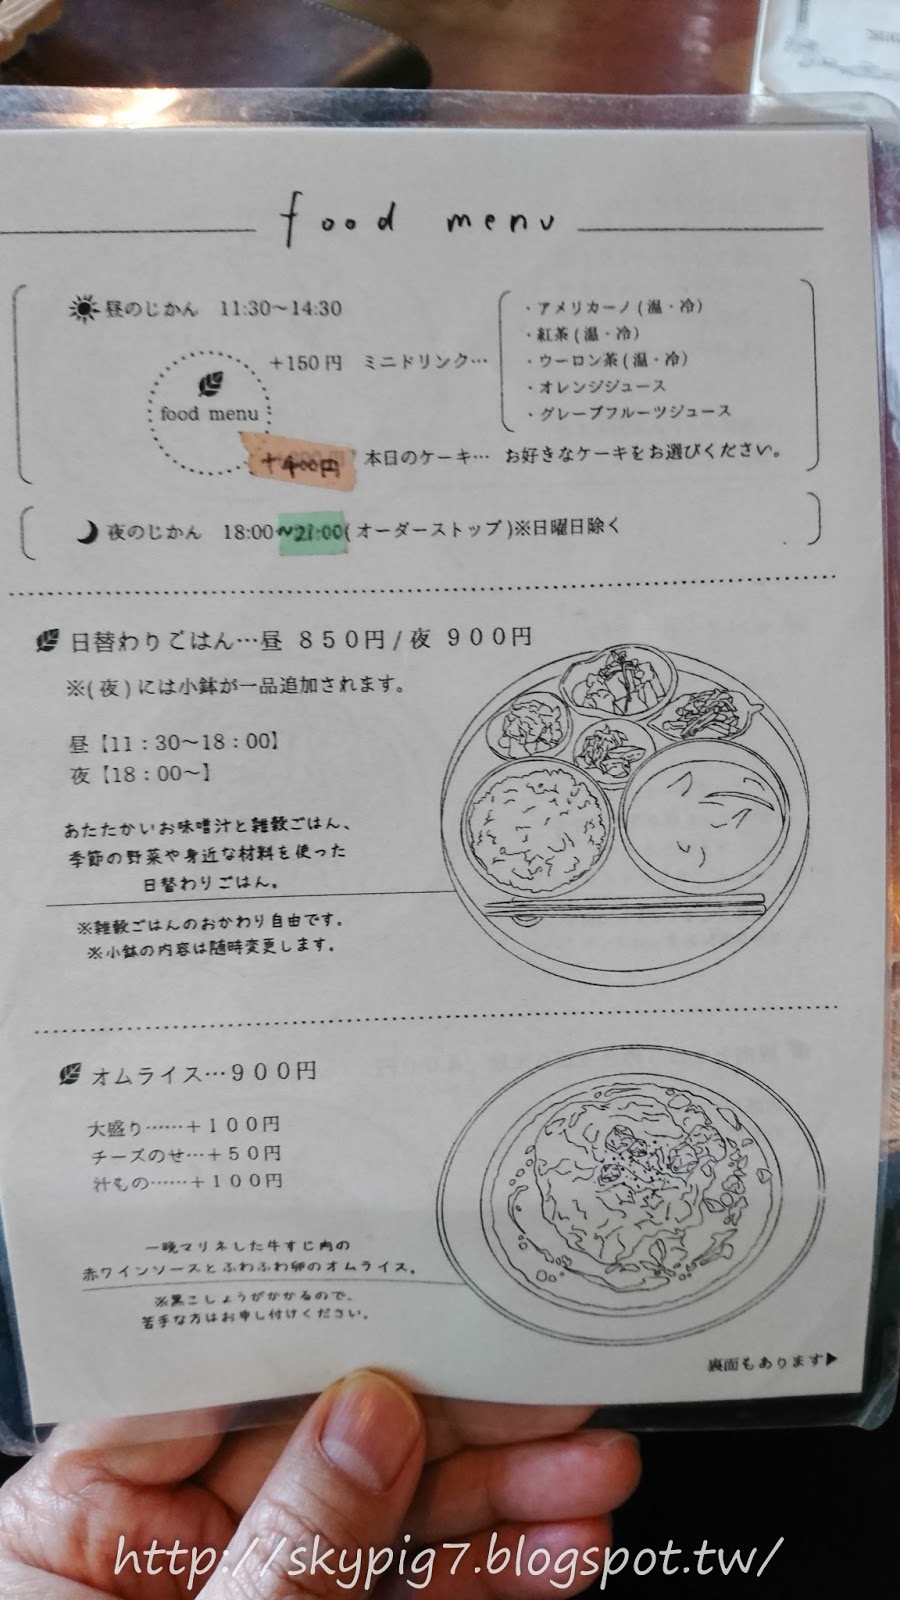 food menu
昼のじかん 11:30～14:30
+150円 ミニドリンク…
・アメリカーノ(温・冷)
・紅茶(温・冷)
・ウーロン茶(温・冷)
・オレンジジュース
・グレープフルーツジュース
food menu
+400円 本日のケーキ… お好きなケーキをお選びください。
夜のじかん 18:00～21:00(オーダーストップ)※日曜日除く
日替わりごはん…昼 850円/夜 900円
※(夜)には小鉢が一品追加されます。
昼【11:30～18:00】
夜【18:00～】
あたたかいお味噌汁と雑穀ごはん、
季節の野菜や身近な材料を使った
日替わりごはん。
※雑穀ごはんのおかわり自由です。
※小鉢の内容は随時変更します。
オムライス…900円
大盛り……+100円
チーズのせ…+50円
汁もの……+100円
一晩マリネした牛すじ肉の
赤ワインソースとふわふわ卵のオムライス。
※黒こしょうがかかるので、
苦手な方はお申し付けください。
裏面もあります▶
http://skypig7.blogspot.tw/